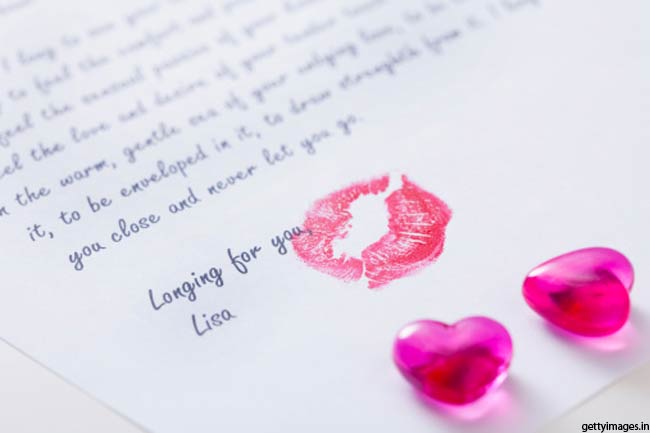 I long to see your
to feel the comfort and
feel the sensual passion of your
eel the love and desire of your tender
n the warm, gentle sea of your undying love, to
it, to be enveloped in it, to draw strength from it. I
you close and never let you go.
Longing for you,
Lisa
gettyimages.in